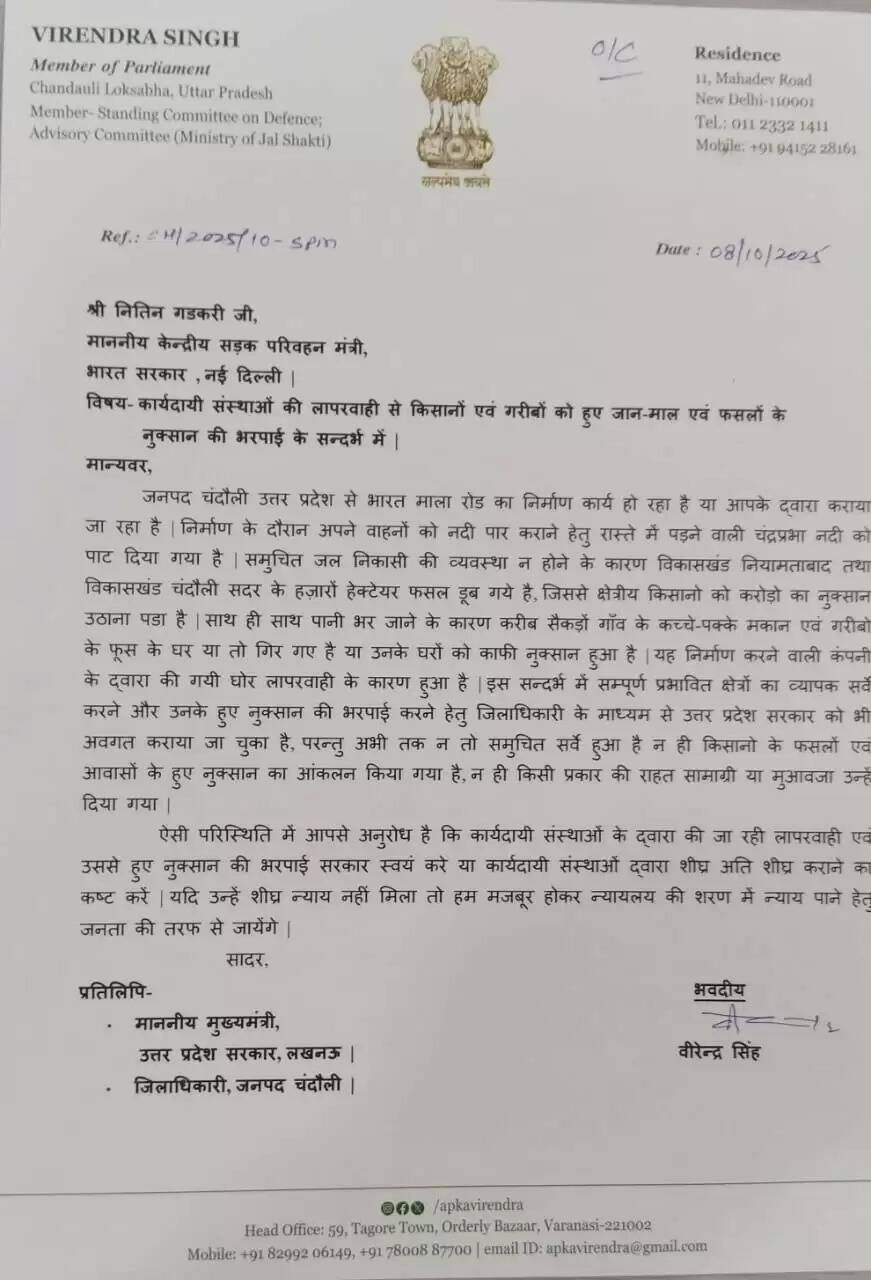 VIRENDRA SINGH
Member of Parliament
Chandauli Loksabha, Uttar Pradesh
Member- Standing Committee on Defence;
Advisory Committee (Ministry of Jal Shakti)
सत्यमेव जयते
O/C
Residence
11, Mahadev Road
New Delhi-110001
Tel.: 011 2332 1411
Mobile: +91 94152 28161
Ref.: CH/2025/10-SPM
Date : 08/10/2025
श्री नितिन गडकरी जी,
माननीय केन्द्रीय सड़क परिवहन मंत्री,
भारत सरकार , नई दिल्ली |
विषय- कार्यदायी संस्थाओं की लापरवाही से किसानों एवं गरीबों को हुए जान-माल एवं फसलों के
नुक्सान की भरपाई के सन्दर्भ में |
मान्यवर,
जनपद चंदौली उत्तर प्रदेश से भारत माला रोड का निर्माण कार्य हो रहा है या आपके द्वारा कराया
जा रहा है | निर्माण के दौरान अपने वाहनों को नदी पार कराने हेतु रास्ते में पड़ने वाली चंद्रप्रभा नदी को
पाट दिया गया है | समुचित जल निकासी की व्यवस्था न होने के कारण विकासखंड नियामताबाद तथा
विकासखंड चंदौली सदर के हज़ारों हेक्टेयर फसल डूब गये है, जिससे क्षेत्रीय किसानो को करोड़ो का नुक्सान
उठाना पडा है | साथ ही साथ पानी भर जाने के कारण करीब सैकड़ों गाँव के कच्चे-पक्के मकान एवं गरीबो
के फूस के घर या तो गिर गए है या उनके घरों को काफी नुक्सान हुआ है | यह निर्माण करने वाली कंपनी
के द्वारा की गयी घोर लापरवाही के कारण हुआ है | इस सन्दर्भ में सम्पूर्ण प्रभावित क्षेत्रों का व्यापक सर्वे
करने और उनके हुए नुक्सान की भरपाई करने हेतु जिलाधिकारी के माध्यम से उत्तर प्रदेश सरकार को भी
अवगत कराया जा चुका है, परन्तु अभी तक न तो समुचित सर्वे हुआ है न ही किसानो के फसलों एवं
आवासों के हुए नुक्सान का आंकलन किया गया है, न ही किसी प्रकार की राहत सामाग्री या मुआवजा उन्हें
दिया गया |
ऐसी परिस्थिति में आपसे अनुरोध है कि कार्यदायी संस्थाओं के द्वारा की जा रही लापरवाही एवं
उससे हुए नुक्सान की भरपाई सरकार स्वयं करे या कार्यदायी संस्थाओं द्वारा शीघ्र अति शीघ्र कराने का
कष्ट करें | यदि उन्हें शीघ्र न्याय नहीं मिला तो हम मजबूर होकर न्यायलय की शरण में न्याय पाने हेतु
जनता की तरफ से जायेंगे |
सादर,
प्रतिलिपि-
· माननीय मुख्यमंत्री,
उत्तर प्रदेश सरकार, लखनऊ |
· जिलाधिकारी, जनपद चंदौली |
भवदीय
वीरेन्द्र सिंह
/apkavirendra
Head Office: 59, Tagore Town, Orderly Bazaar, Varanasi-221002
Mobile: +91 82992 06149, +91 78008 87700 | email ID: apkavirendra@gmail.com